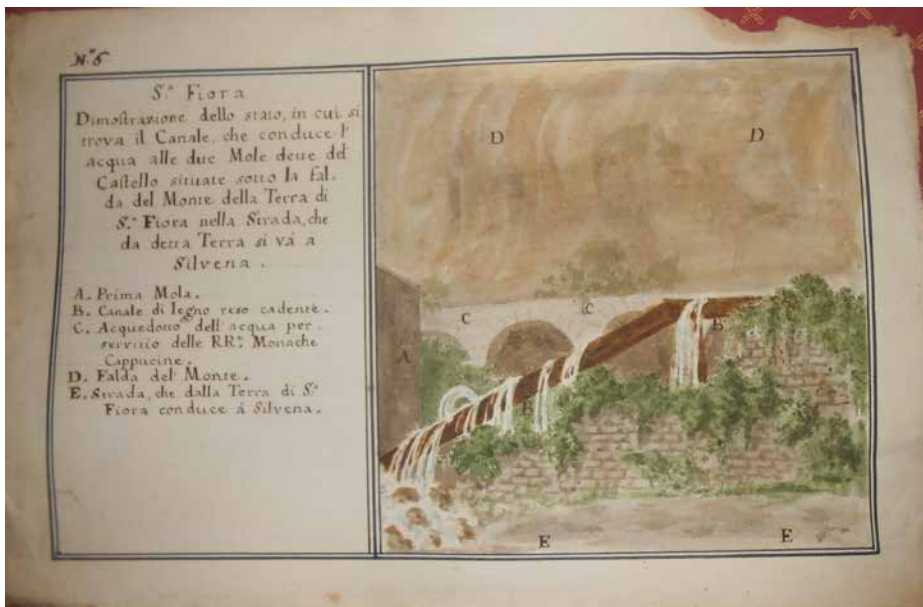 N.º 6
S.ª Fiora
Dimostrazione dello stato, in cui si
trova il Canale, che conduce l'
acqua alle due Mole dette del
Castello situate sotto la fal-
da del Monte della Terra di
S.ª Fiora nella Strada, che
da detta Terra si và a
Silvena.
A. Prima Mola.
B. Canale di legno reso cadente.
C. Acquedotto dell'acqua per
servitio delle RR.e Monache
Cappucine.
D. Falda del Monte.
E. Strada, che dalla Terra di S.ª
Fiora conduce à Silvena.
D D
C C
B
A
B
E E